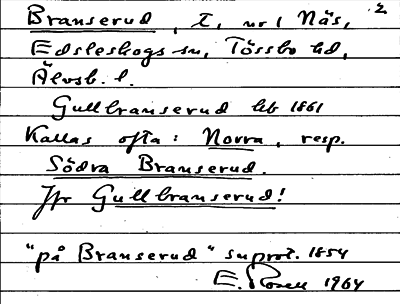 2
Branserud, T, nr 1 Näs,
Edsleskogs sn, Tössbo hd,
Älvsb. l.
Gullbranserud hb 1861
Kallas ofta: Norra, resp.
Södra Branserud.
Jfr Gullbranserud!
"på Branserud" snprot. 1854
E. Rosell 1964